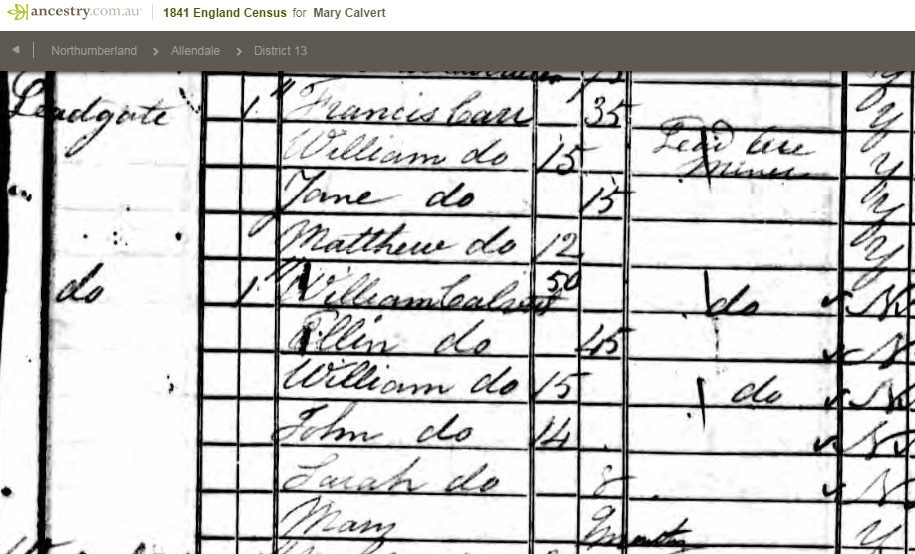 ancestry.com.au 1841 England Census for Mary Calvert
Northumberland > Allendale > District 13
Leadgate 1 Francis Carr 35 Y
William do 15 Lead Ore Miner Y
Jane do 15 Y
Matthew do 12 Y
do 1 William Calvert 50 do N
Ellin do 45 N
William do 15 do N
John do 14 N
Sarah do 8 N
Mary Y